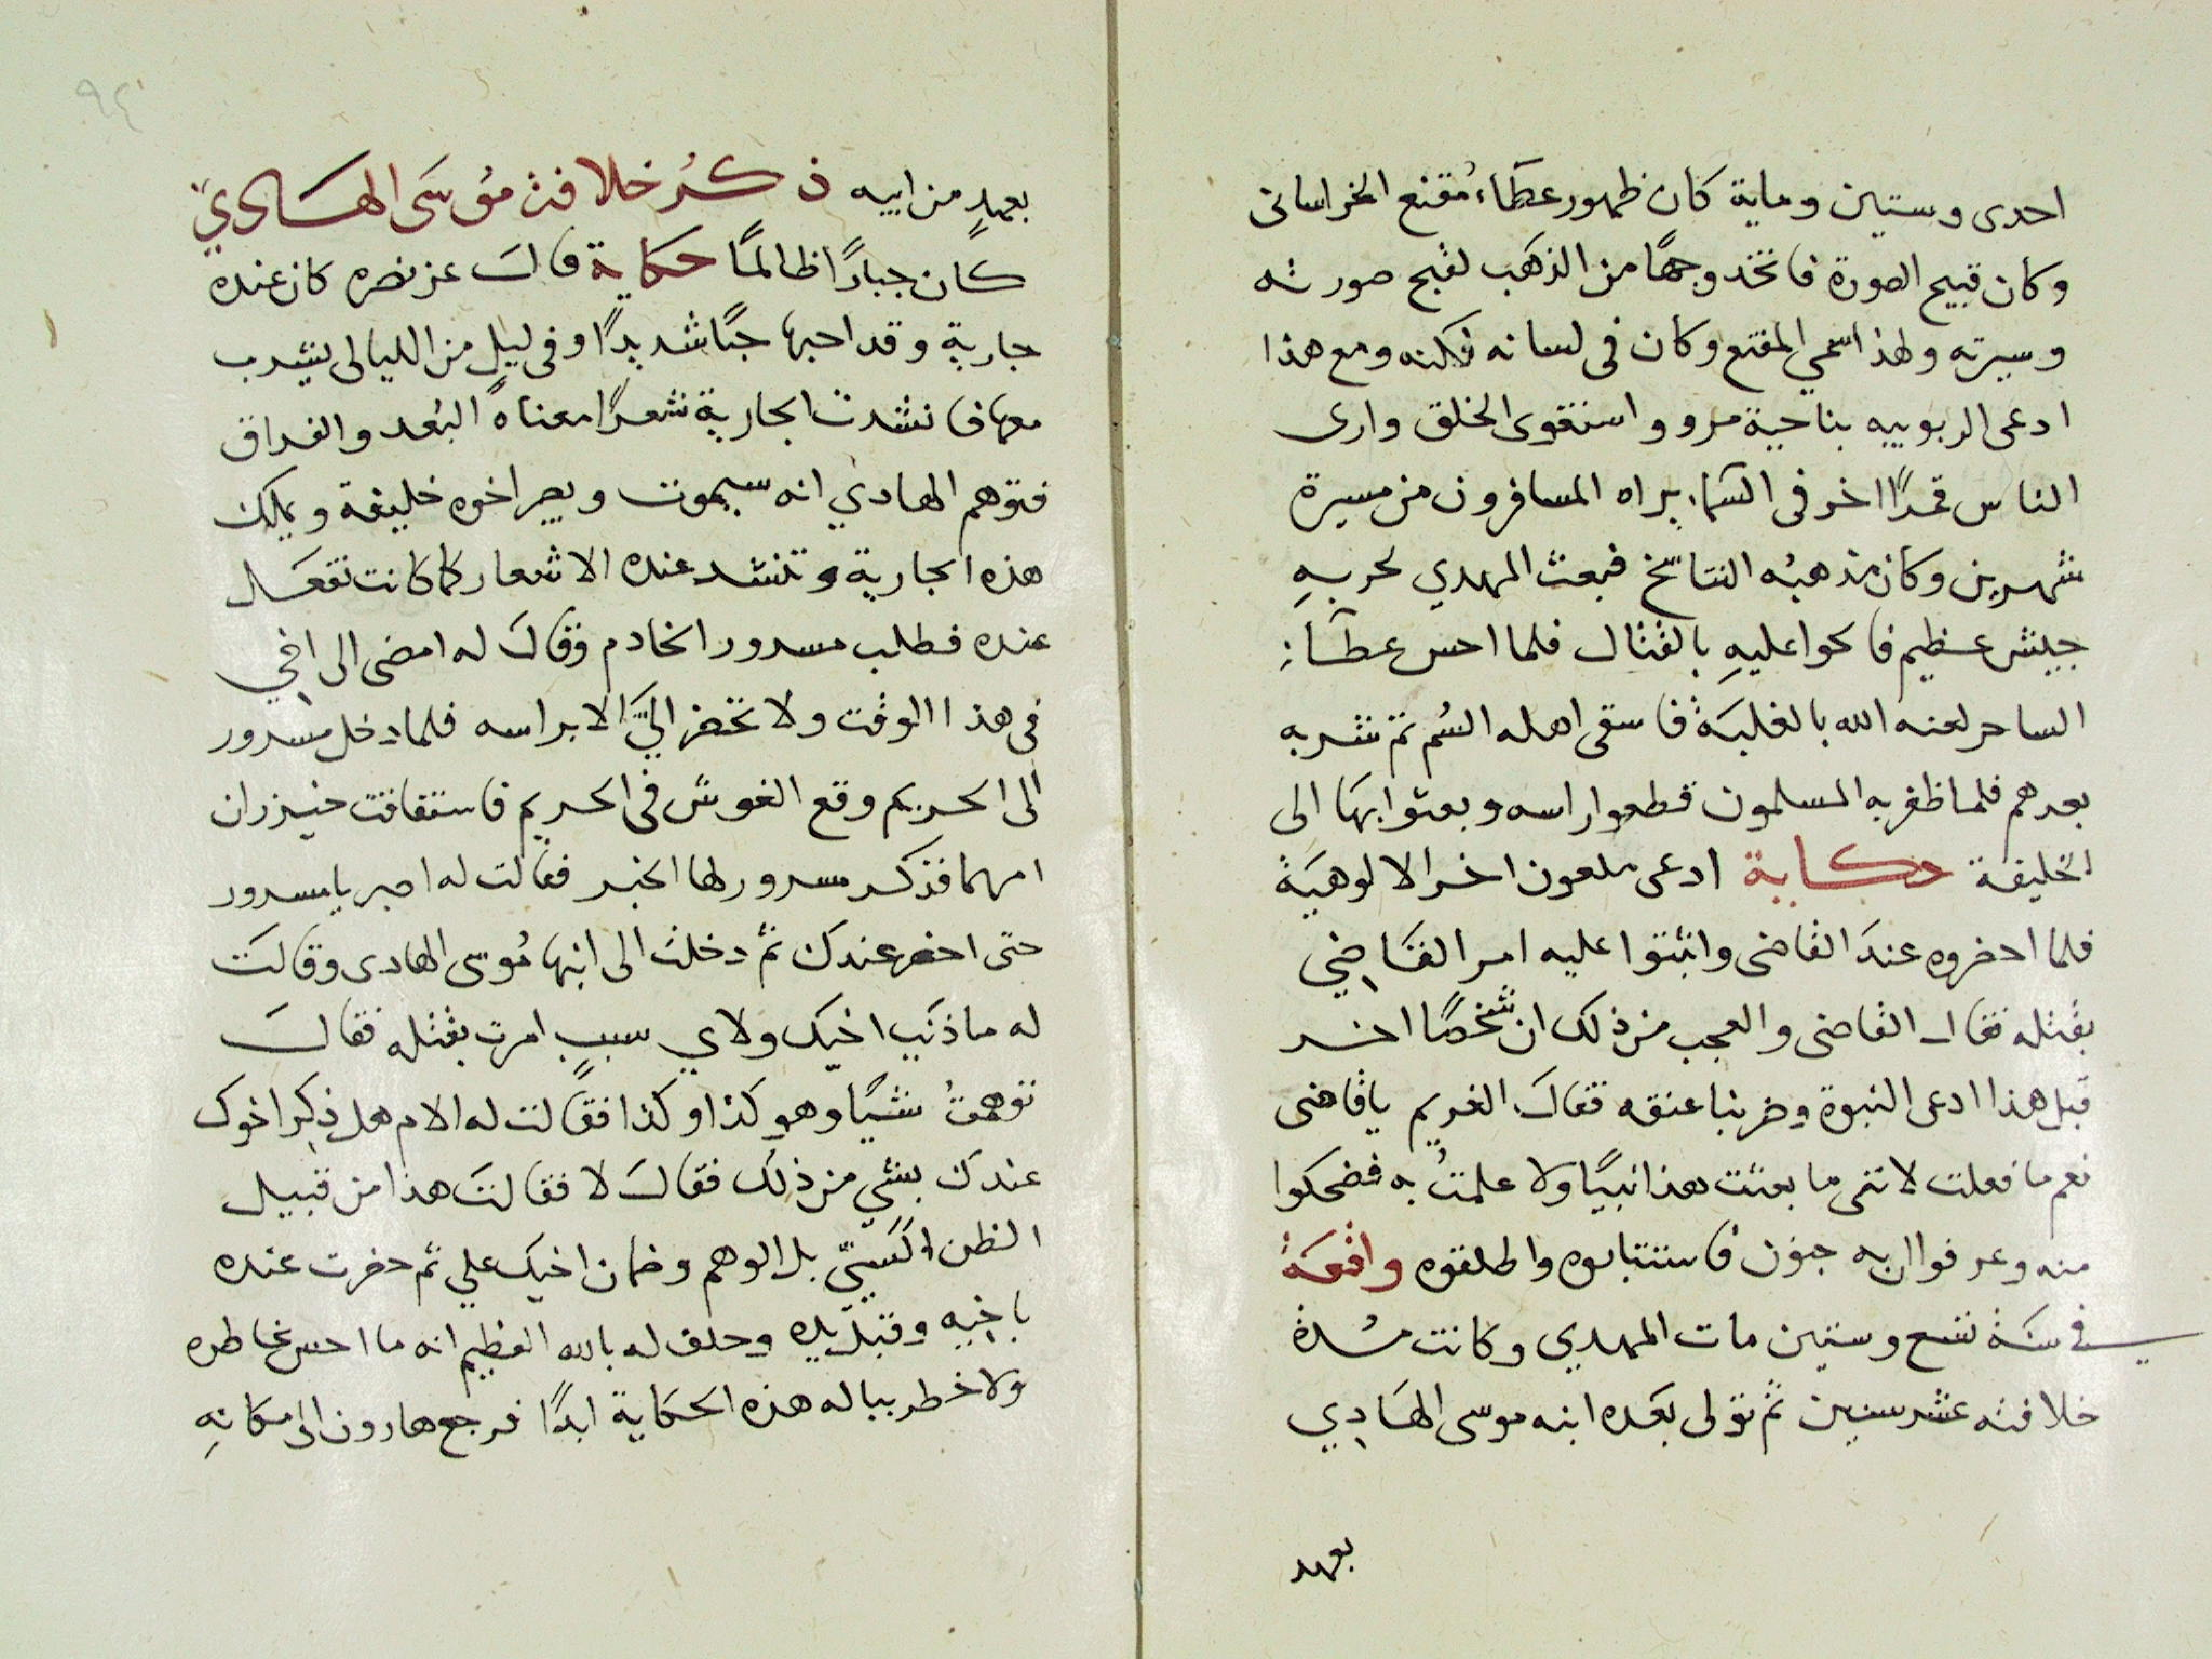 احدى وستين وماية كان ظهور عطاء مُقنع الخراسانى
وكان قبيح الصورة فاتخذ وجهًا من الذهب لقبح صورته
وسيرته ولهذا سمي المقنع وكان فى لسانه لكنه ومع هذا
ادعى الربوبيه بناحية مرو واستقوى الخلق وارى
الناس قمرًا اخر فى السَماء يراه المسافرون من مسيرة
شهرين وكان مذهبُه التناسخ فبعث المهدي لحربهِ
جيش عظيم فالحوا عليهِ بالقتال فلما احس عطآء
الساحر لعنه الله بالغلبَة فاسقى اهله السُم ثم شربه
بعدهم فلما ظفر به المسلمون قطعوا راسه وبعثوا بهَا الى
الخليفة حكاية ادعى ملعون اخر الالوهيَة
فلما احضروه عندَ القاضى واثبتوا عليه امر القَاضي
بقتله فقال القاضى والعجب من ذلك ان شخصًا اخر
قبل هذا ادعى النبوة وضربنا عنقه فقالَ الغريم يا قاضى
نعم ما فعلت لاننى ما بعثت هذا نبيًا ولا علمتُ به فضحكوا
منه وعرفوا ان به جنون فاستتابوه واطلقوه واقعَة
في سَنَة تسع وستين مات المهدي وكانت مُدة
خلافته عشر سنين ثم تولى بعَده ابنه موسى الهَادِي
بعهد
٩٤
بعهدٍ من ابيه ذكرُ خلافة مُوسَى الهَادِي
كان جبارًا ظالمًا حكاية قالَ عز نصره كان عنده
جارية وقد احبها حبًا شديدًا وفى ليل من الليالى يشرب
معها فانشدت الجارية شعرًا معناهُ البُعد والفراق
فتوهم الهادي انه سيموت ويصير اخوه خليفة ويملك
هذه الجارية وتنشد عنده الاشعار كما كانت تفعَل
عنده فطلب مسرور الخادم وقالَ له امضى الى اخي
فى هذا الوقت ولا تحضر اليَّ الا براسه فلما دخل مسرور
الى الحريم وقع الغوش فى الحريم فاستفاقت خيزران
امهما فذكر مسرور لها الخبر فقالت له اصبر يا مسرور
حتى احضر عندك ثم دخلت الى ابنها مُوسى الهادى وقالَت
له ما ذنب اخيك ولاي سببٍ امرت بقتله فقالَ
توهمتُ شيًا وهو كذا وكذا فقالت له الام هل ذكر اخوك
عندك بشي من ذلك فقالَ لا فقالَت هذا من قبيل
الظن السيّ بل الوهم وضمان اخيك علي ثم حضرت عنده
باخيه وقبل يده وحلف له بالله العظيم انه ما احس بخاطره
ولا خطر بباله هذه الحكاية ابدًا فرجع هارون الى مكانهِ